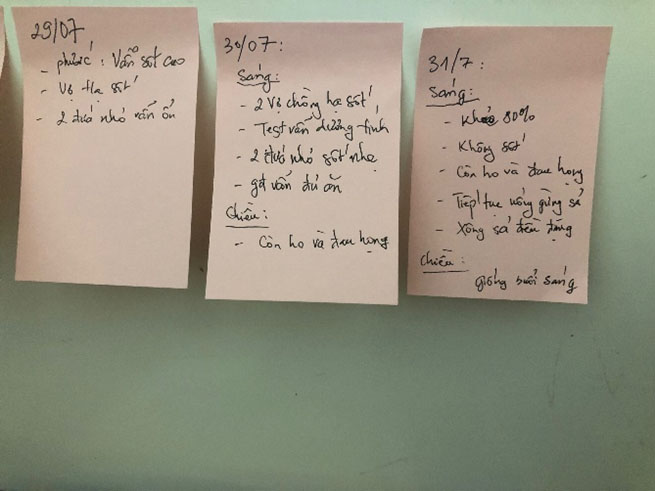 29/07
- phước: Vẫn sốt cao
- Vợ hạ sốt
- 2 đứa nhỏ vẫn ổn
30/07:
Sáng:
- 2 vợ chồng hạ sốt
- Test vẫn dương tính
- 2 đứa nhỏ sốt nhẹ
- gđ vẫn đủ ăn
Chiều:
- Còn ho và đau họng
31/7:
Sáng:
- Khoẻ 80%
- Không sốt
- Còn ho và đau họng
- Tiếp tục uống gừng sả
- Xông sả đều đặng
Chiều:
giống buổi sáng